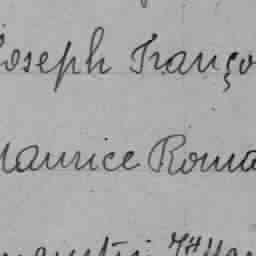 Joseph Franço
Maurice Roma